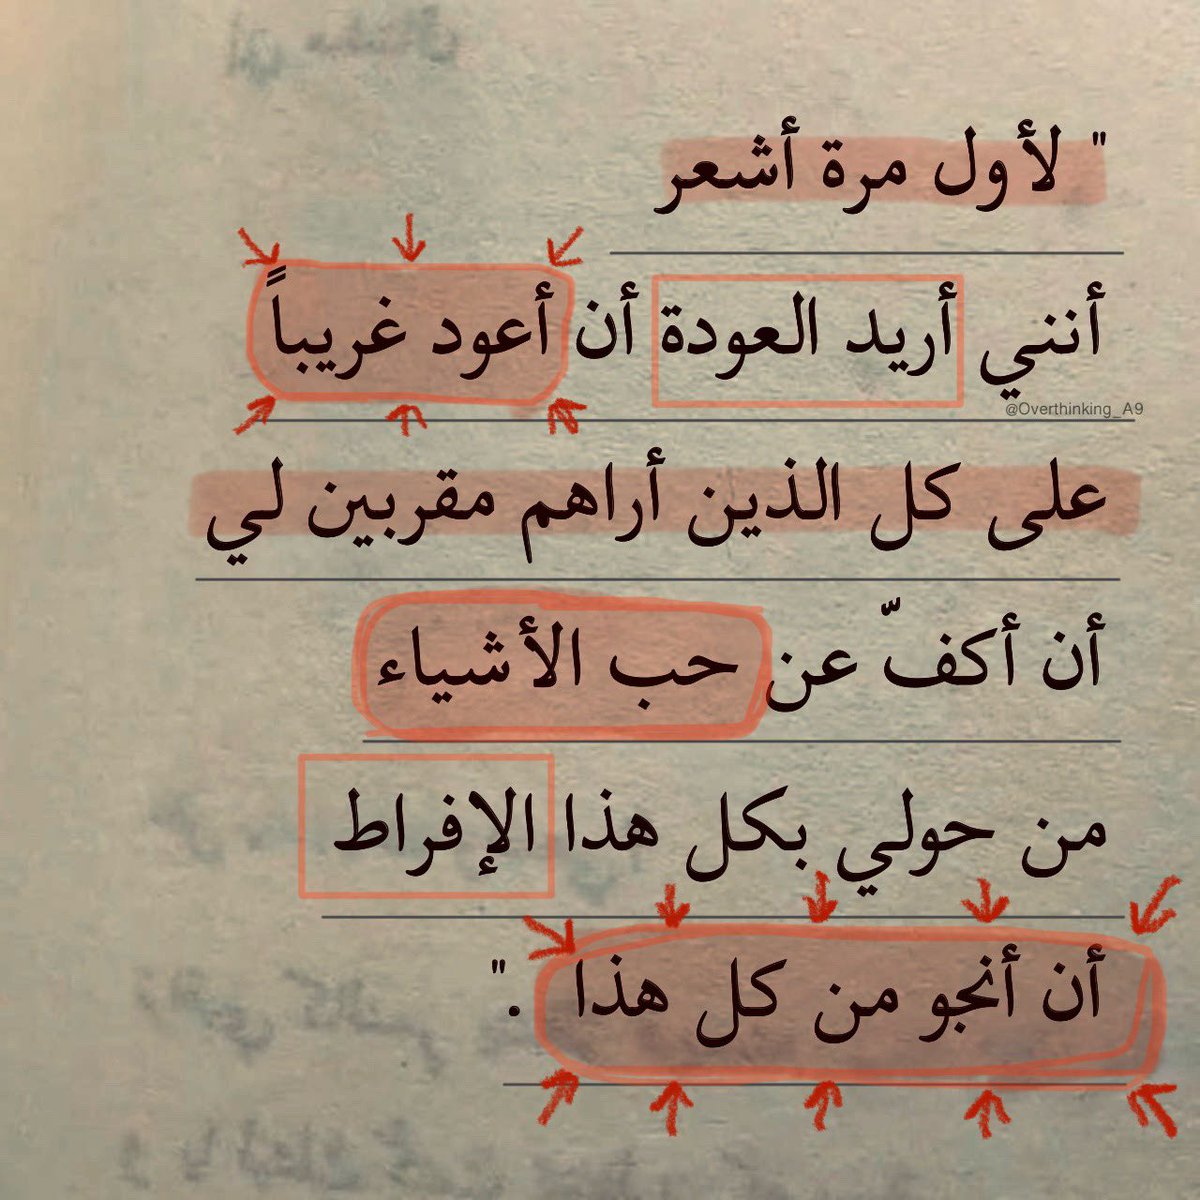 " لأول مرة أشعر
أنني أريد العودة أن أعود غريباً
@Overthinking_A9
على كل الذين أراهم مقربين لي
أن أكفّ عن حب الأشياء
من حولي بكل هذا الإفراط
أن أنجو من كل هذا ."